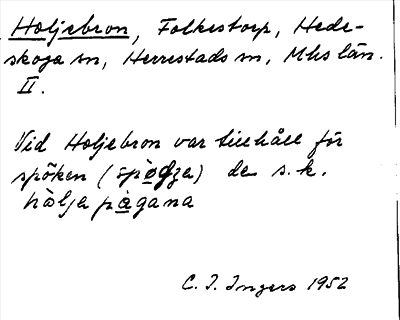 Holjebron, Folkestorp, Hede-
skoga sn, Herrestads sn, Mhs län.
II.
Vid Holjebron var tillhåll för
spöken (                ) de s.k.
hålja pàgana
C. I. Ingers 1952